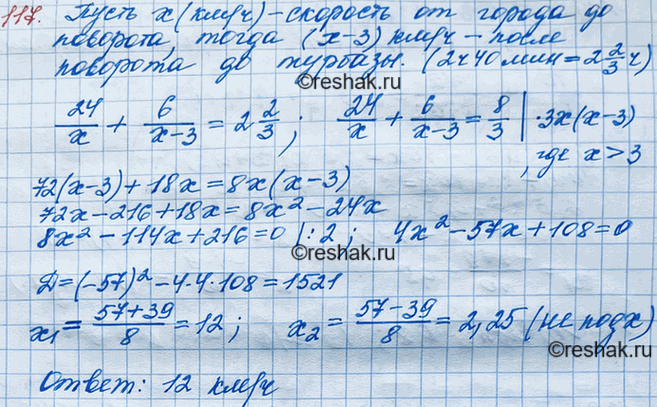 117. Пусть x (км/ч) – скорость от города до
поворота, тогда (x-3) км/ч – после
поворота до турбазы. (2ч 40 мин = 2 2/3 ч)
©reshak.ru
24/x + 6/(x-3) = 2 2/3 ; 24/x + 6/(x-3) = 8/3 | ·3x(x-3)
, где x > 3
72(x-3) + 18x = 8x(x-3)
72x - 216 + 18x = 8x² - 24x
8x² - 114x + 216 = 0 |:2 ; 4x² - 57x + 108 = 0
Д = (-57)² - 4·4·108 = 1521
x₁ = (57+39)/8 = 12 ; x₂ = (57-39)/8 = 2,25 (не подх)
©reshak.ru
Ответ: 12 км/ч